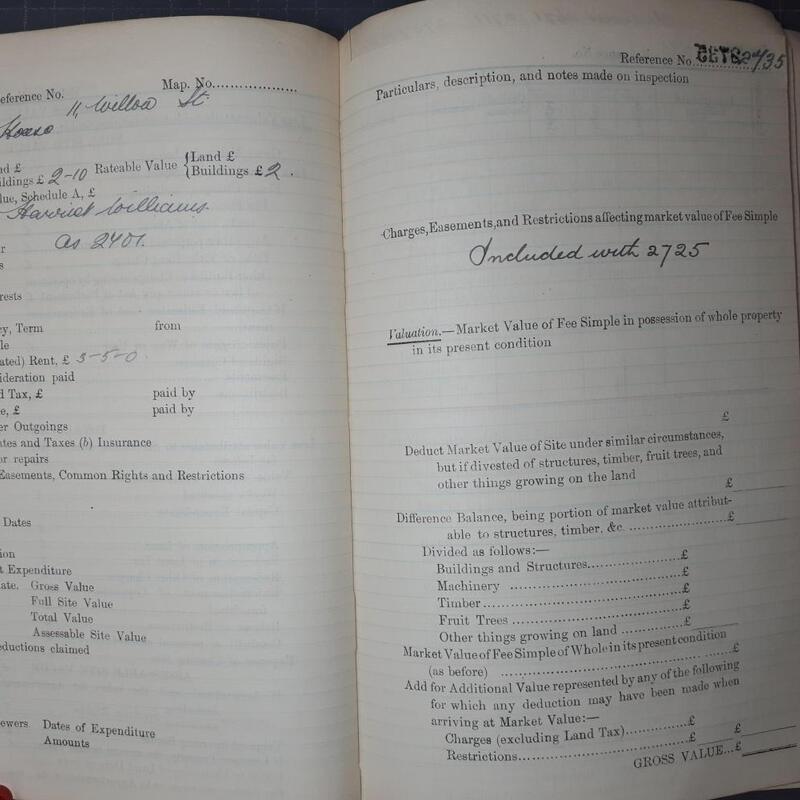 eference No. Map. No..................
11, Willow St.
House
nd £
ildings £ 2-10 Rateable Value {Land £
{Buildings £ 2.
lue, Schedule A, £
Harriet Williams.
r as 2401.
s
rests
cy, Term from
le
ated) Rent, £ 3-5-0.
ideration paid
d Tax, £ paid by
e, £ paid by
er Outgoings
ates and Taxes (b) Insurance
or repairs
Easements, Common Rights and Restrictions
Dates
ion
t Expenditure
ate. Gross Value
Full Site Value
Total Value
Assessable Site Value
eductions claimed
ewers Dates of Expenditure
Amounts
Reference No. 2735
Particulars, description, and notes made on inspection
Charges, Easements, and Restrictions affecting market value of Fee Simple
Included with 2725
Valuation.—Market Value of Fee Simple in possession of whole property
in its present condition
£
Deduct Market Value of Site under similar circumstances,
but if divested of structures, timber, fruit trees, and
other things growing on the land £
Difference Balance, being portion of market value attribut-
able to structures, timber, &c. ....................£
Divided as follows:—
Buildings and Structures....................£
Machinery ....................£
Timber....................£
Fruit Trees ....................£
Other things growing on land ............£
Market Value of Fee Simple of Whole in its present condition
(as before) ....................£
Add for Additional Value represented by any of the following
for which any deduction may have been made when
arriving at Market Value:—
Charges (excluding Land Tax)............£
Restrictions....................£ £
GROSS VALUE...£